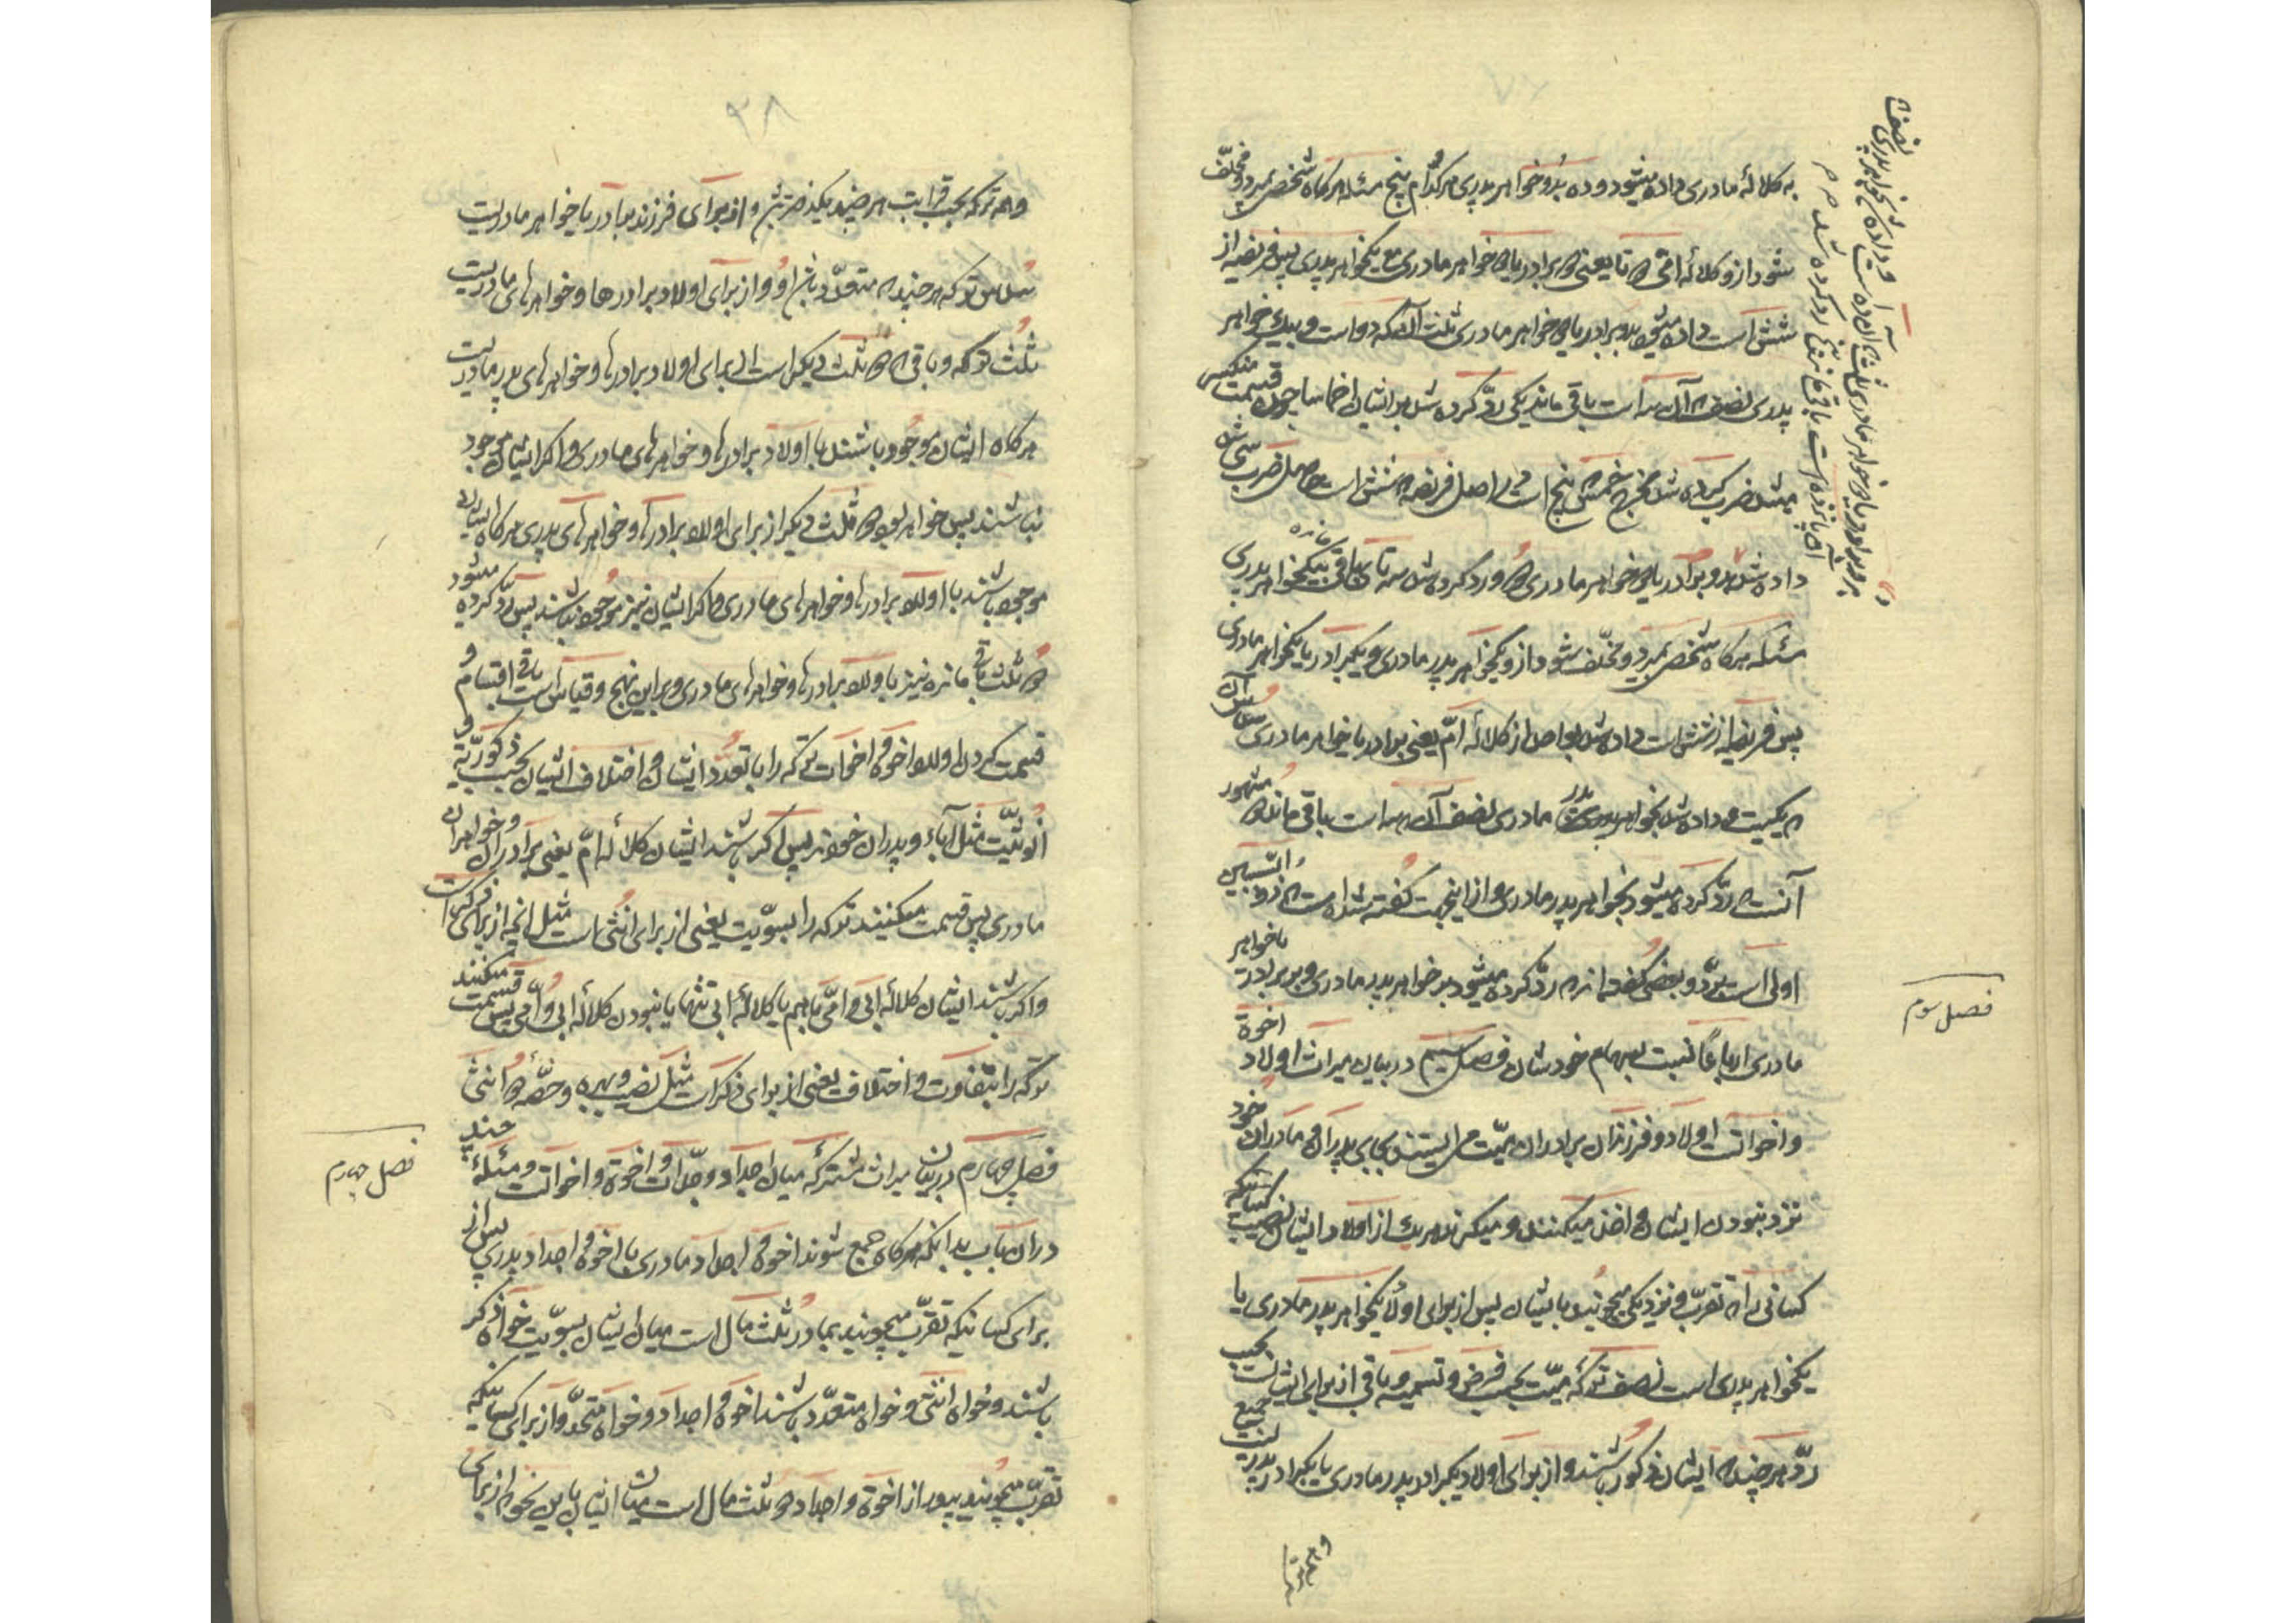 به کلالهٔ مادری داده میشود و ده بدو خواهر پدری هر کدام پنج مسئله هرگاه شخص بمیرد و مخلّف
شود از و کلالهٔ امّی دو تا یعنی دو برادر یا دو خواهر مادری مع یکخواهر پدری پس فریضه از
شش است داده میشود بدو برادر یا دو خواهر مادری ثلث آن که دو است و بیک خواهر
پدری نصف آن سه است باقی ماند یکی ردّ کرده شد بر ایشان اخماسا چون قسمت منکسر
میشد ضرب کرده شد مخرج خمس که پنج است در اصل فریضه که شش است حاصل ضرب سی شد
داده شد بدو برادر یا دو خواهر مادری و رد کرده شد سه تای باقی مانده بیکخواهر پدری
مسئله هرگاه شخص بمیرد و مخلّف شود از و یکخواهر پدر مادری و یکبرادر یا یکخواهر مادری
پس فریضه از شش است داده شد بواحد از کلالهٔ امّ یعنی برادر یا خواهر مادری سدس آن
که یکیست و داده شد بخواهر پدر مادری نصف آن که سه است باقی مانده دو مشهور
آنست که ردّ کرده میشود بخواهر پدر مادری و از اینجهت گفته شده است که ذو السّببین
اولی است بردّ و بعضی گفته‌اند که ردّ کرده میشود بر خواهر پدر مادری و بر برادر یا خواهر
مادری ارباعًا نسبت بسهام خودشان فصل سیّم در بیان میراث اولاد اخوة
و اخوات اولاد و فرزندان برادران میّت می ایستند بجای پدران و مادران خود
نزد نبودن ایشان و اخذ میکنند و میگیرند هر یک از اولاد ایشان نصیب کسانیکه
کسانی را که تقرّب و نزدیکی میجویند بایشان پس از برای اولاد یکخواهر پدر مادری یا
یکخواهر پدری است نصف ترکهٔ میّت بحسب فرض و تسمیه و باقی از برای ایشان است بحسب
ردّ هر چند که ایشان ذکور باشند و از برای اولاد یکبرادر پدر مادری یا یکبرادر پدریست جمیع
و همه ترکه
فصل سوم
۲۸
و همه ترکه بحسب قرابت هر چند یکنفر باشد و از برای فرزند برادر یا خواهر مادریست
سدس ترکه هر چند که متعدّد باشد او و از برای اولاد برادرها و خواهرهای مادریست
ثلث ترکه و باقی که دو ثلث دیگر است از برای اولاد برادرها و خواهرهای پدر مادریست
هرگاه ایشان موجود باشند با اولاد برادرها و خواهرهای مادری و اگر ایشان موجود
نباشند پس خواهد بود دو ثلث دیگر از برای اولاد برادرها و خواهرهای پدری هرگاه ایشان
موجود باشند با اولاد برادرها و خواهرهای مادری و اگر ایشان نیز موجود نباشند پس ردّ کرده میشود
دو ثلث باقی مانده نیز باولاد برادرها و خواهرهای مادری و بر این نهج و قیاس است باقی اقسام و
قسمت کردن اولاد اخوة و اخوات ترکه را با تعدّد ایشان و اختلاف ایشان بحسب ذکوریّة و
اُنوثیّت مثل آباء و پدران خودند پس اگر باشند ایشان کلالهٔ امّ یعنی برادران و خواهران
مادری پس قسمت میکنند ترکه را بسویّت یعنی از برای انثی است مثل انچه از برای ذکر است
و اگر باشند ایشان کلالهٔ ابی و امّی با هم یا کلالهٔ ابی تنها با نبودن کلالهٔ ابی و امّی پس قسمت میکنند
ترکه را بتفاوت و اختلاف یعنی از برای ذکر است مثل نصیب و بهره و حصّه دو انثی
فصل چهارم در بیان میراث مشترکه میان اجداد و جدّات و اخوة و اخوات و مسئلهٔ چند
در ان باب بدانکه هرگاه جمع شوند اخوة و اجداد مادری با اخوة و اجداد پدری پس از
برای کسانیکه تقرّب میجویند بمادر ثلث مال است میان ایشان بسویّت خواه ذکر
باشند و خواه انثی و خواه متعدّد باشند اخوة و اجداد و خواه متحدّ و از برای کسانیکه
تقرّب میجویند بپدر از اخوة و اجداد دو ثلث مال است میان ایشان باین نحو که از برای
فصل چهارم